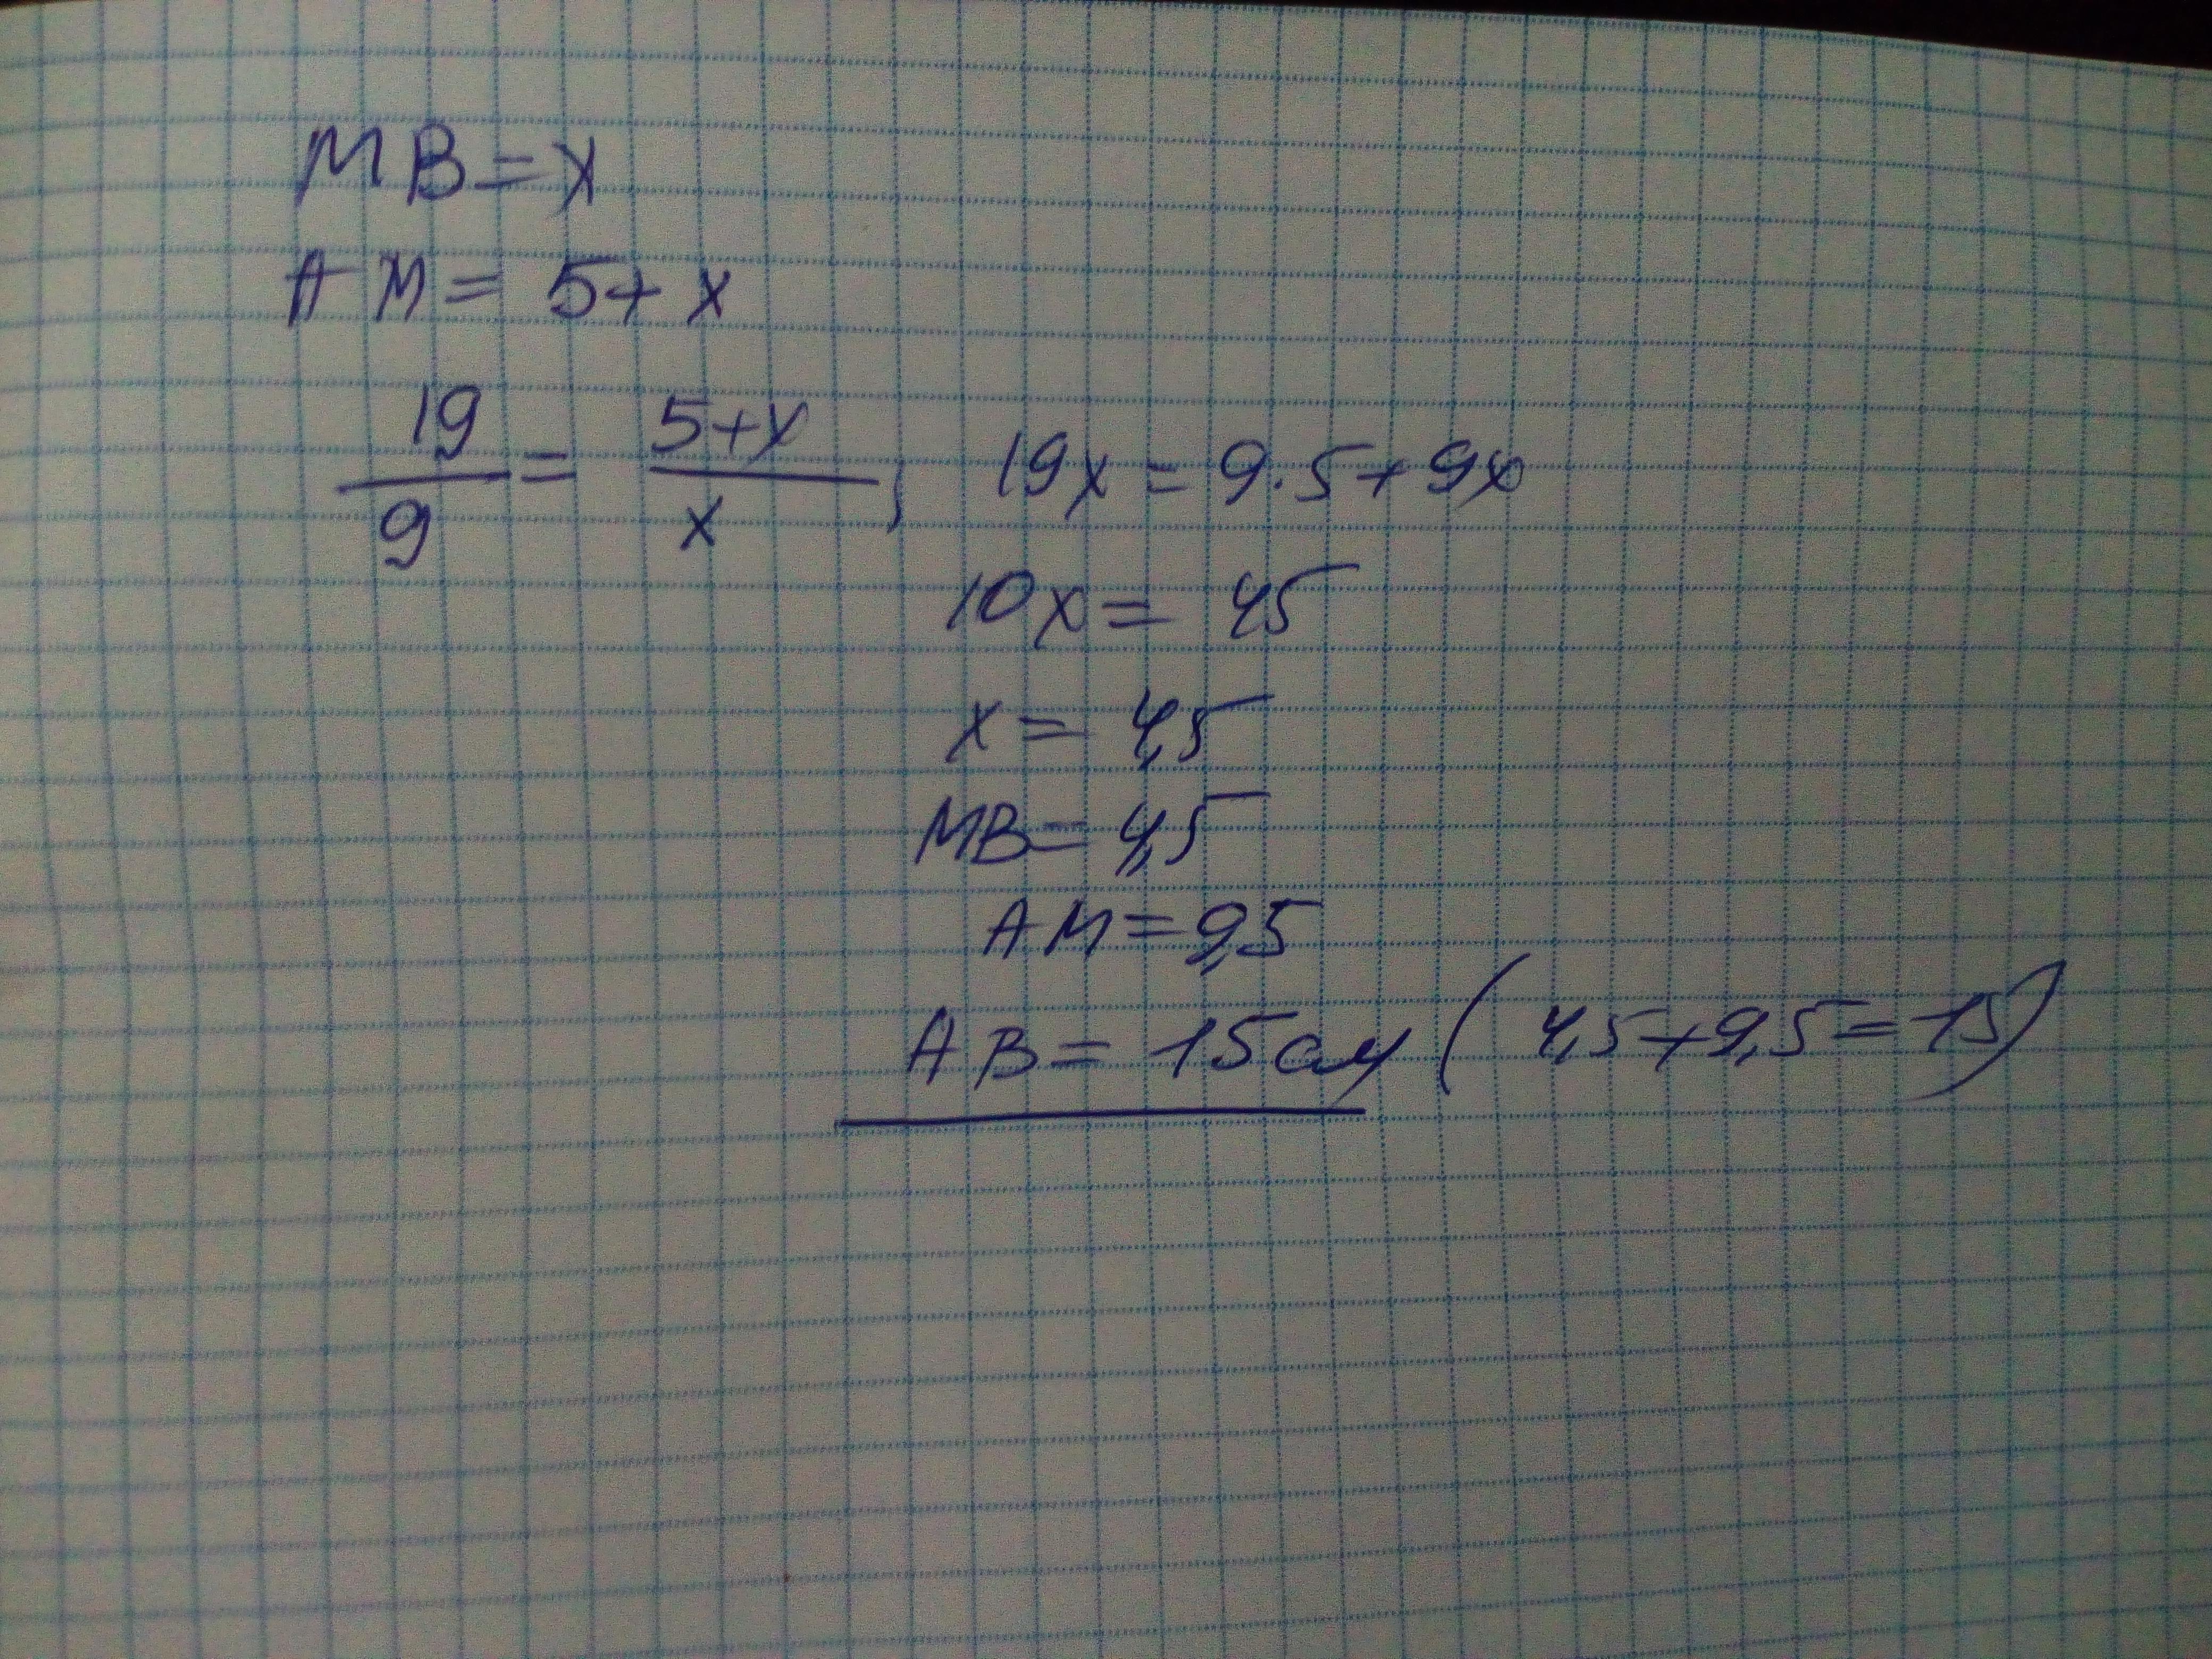 MB = x
AM = 5 + x
19/9 = 5+x/x ; 19x = 9·5 + 9x
10x = 45
x = 4,5
MB = 4,5
AM = 9,5
AB = 15 см (4,5+9,5=15)